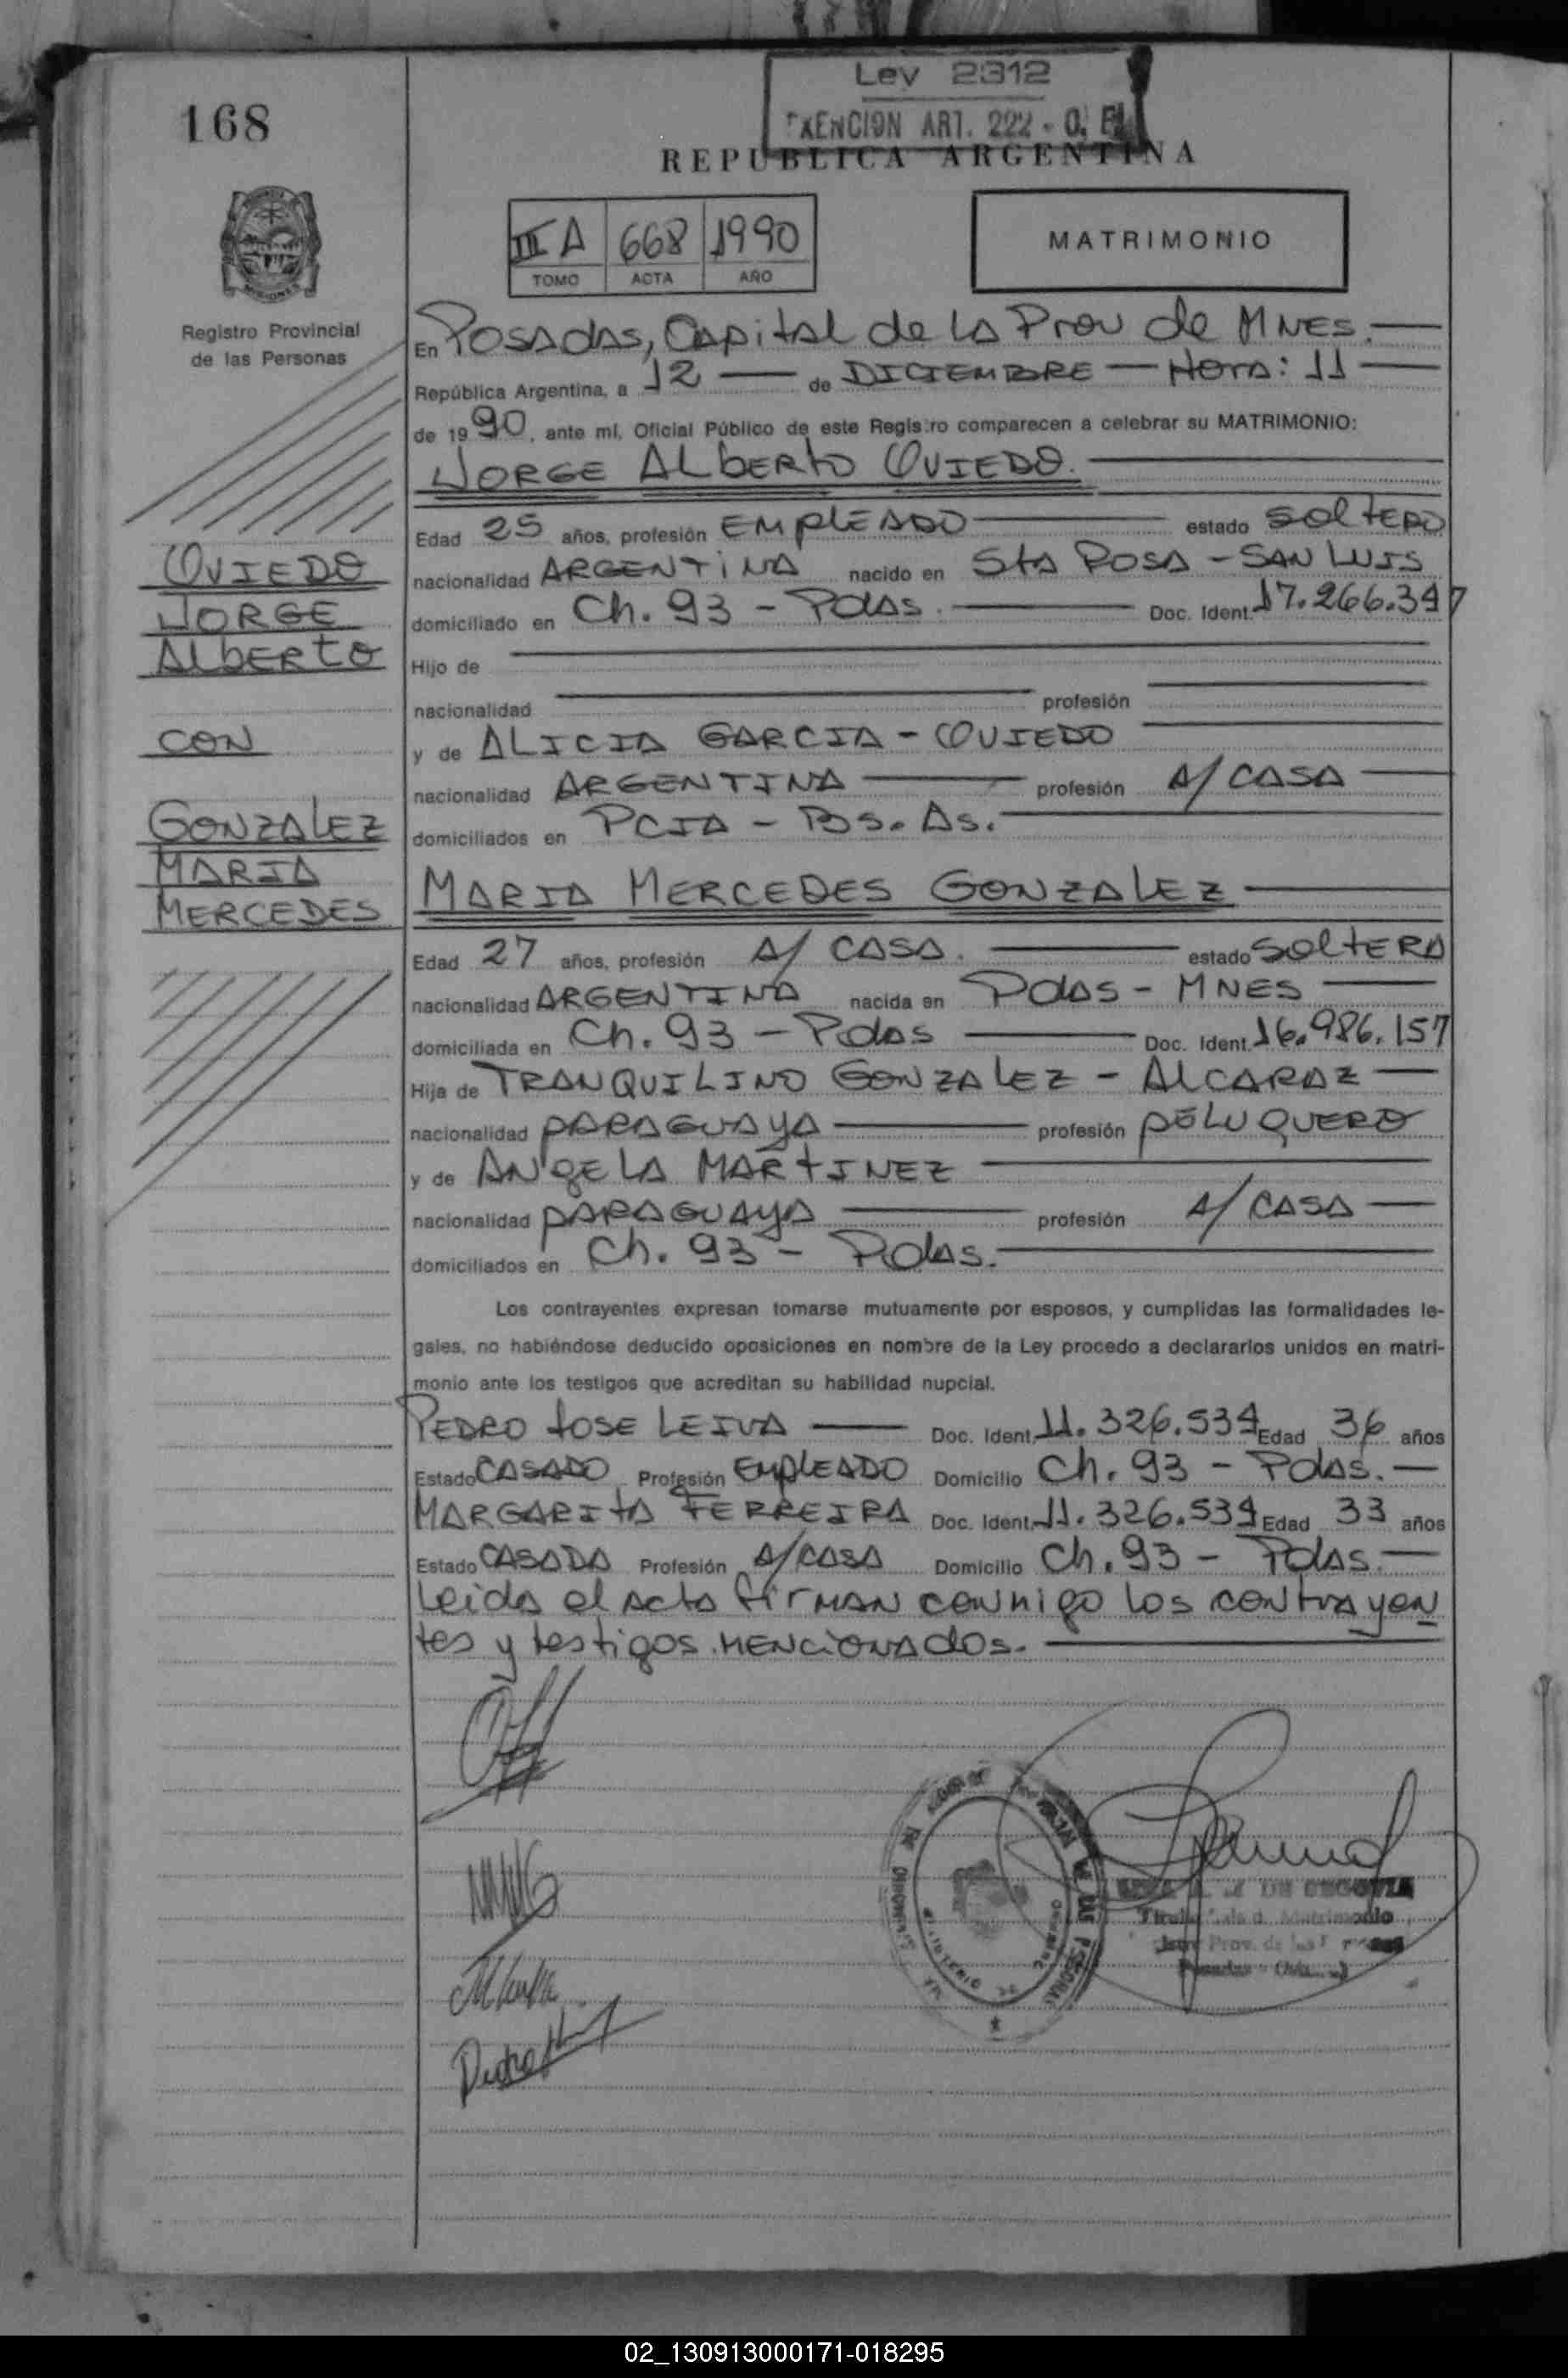 168
Ley 2312
EXENCION ART. 222 - O.
REPUBLICA ARGENTINA
III A 668 1990
TOMO ACTA AÑO
MATRIMONIO
MISIONES
Registro Provincial
de las Personas
En POSADAS, CAPITAL de LA Prov de MNES.
República Argentina, a 12 de DICIEMBRE - HORA: 11
de 1990, ante mí, Oficial Público de este Registro comparecen a celebrar su MATRIMONIO:
JORGE ALBERTO OVIEDO.
Edad 25 años, profesión EMPLEADO estado SOLTERO
nacionalidad ARGENTINA nacido en STA ROSA - SAN LUIS
domiciliado en Ch. 93 - Pdas. Doc. Ident. 17.266.347
Hijo de
nacionalidad profesión
y de ALICIA GARCIA - OVIEDO
nacionalidad ARGENTINA profesión A/ CASA
domiciliados en PCIA - Bs. As.
MARIA MERCEDES GONZALEZ
Edad 27 años, profesión A/ CASA. estado SOLTERA
nacionalidad ARGENTINA nacida en Pdas - MNES
domiciliada en Ch. 93 - Pdas Doc. Ident. 16.986.157
Hija de TRANQUILINO GONZALEZ - ALCARAZ
nacionalidad PARAGUAYA profesión PELUQUERO
y de ANGELA MARTINEZ
nacionalidad PARAGUAYA profesión A/ CASA
domiciliados en Ch. 93 - Pdas.
OVIEDO
JORGE
ALBERTO
CON
GONZALEZ
MARIA
MERCEDES
Los contrayentes expresan tomarse mutuamente por esposos, y cumplidas las formalidades le-
gales, no habiéndose deducido oposiciones en nombre de la Ley procedo a declararlos unidos en matri-
monio ante los testigos que acreditan su habilidad nupcial.
PEDRO JOSE LEIVA Doc. Ident. 11.326.534 Edad 36 años
Estado CASADO Profesión EMPLEADO Domicilio Ch. 93 - Pdas.
MARGARITA FERREIRA Doc. Ident. 11.326.534 Edad 33 años
Estado CASADA Profesión A/CASA Domicilio Ch. 93 - Pdas.
Leida el acta firman conmigo los contrayen
tes y testigos mencionados.
DE SEGOVIA
Matrimonio
Prov. de las
Posadas
02_130913000171-018295